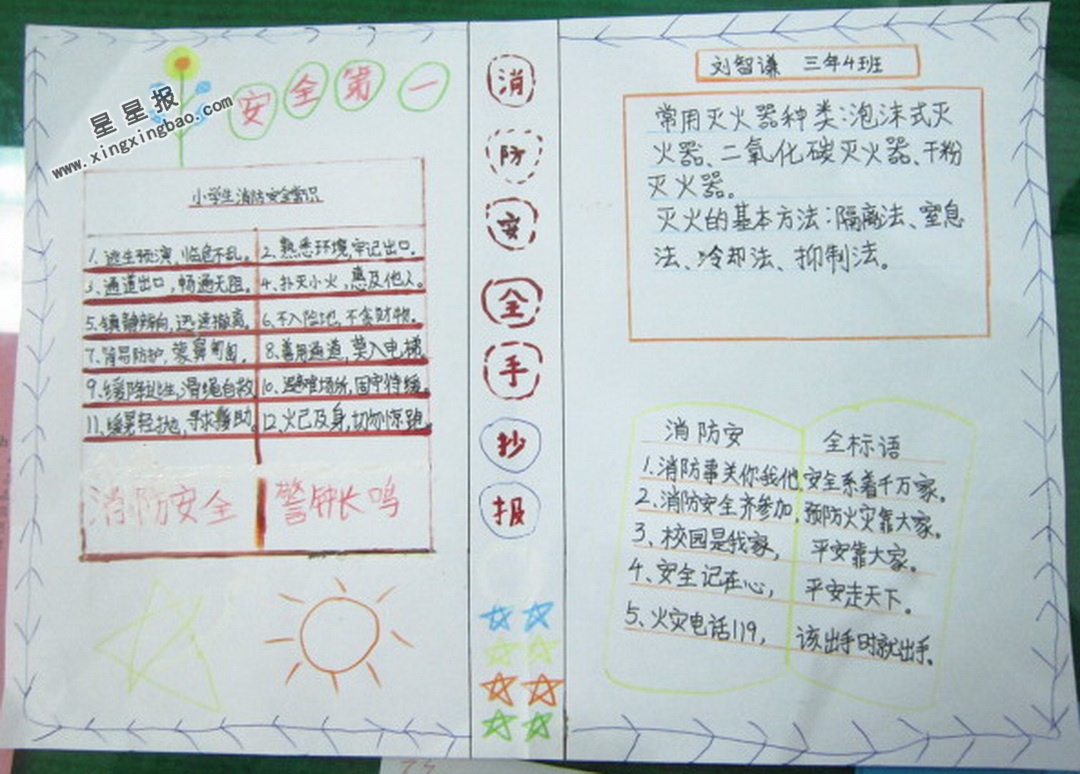 星星报
www.xingxingbao.com
安全第一
小学生消防安全常识
1、逃生预演，临危不乱。
2、熟悉环境，牢记出口。
3、通道出口，畅通无阻。
4、扑灭小火，惠及他人。
5、镇静辨向，迅速撤离。
6、不入险地，不贪财物。
7、简易防护，蒙鼻匍匐。
8、善用通道，莫入电梯。
9、缓降逃生，滑绳自救
10、避难场所，固守待援。
11、缓晃轻抛，寻求援助。
12、火已及身，切勿惊跑。
消防安全 警钟长鸣
消防安全手抄报
刘智谦 三年4班
常用灭火器种类：泡沫式灭
火器、二氧化碳灭火器、干粉
灭火器。
灭火的基本方法：隔离法、窒息
法、冷却法、抑制法。
消防安 全标语
1、消防事关你我他，安全系着千万家。
2、消防安全齐参加，预防火灾靠大家。
3、校园是我家， 平安靠大家。
4、安全记在心， 平安走天下。
5、火灾电话119， 该出手时就出手。